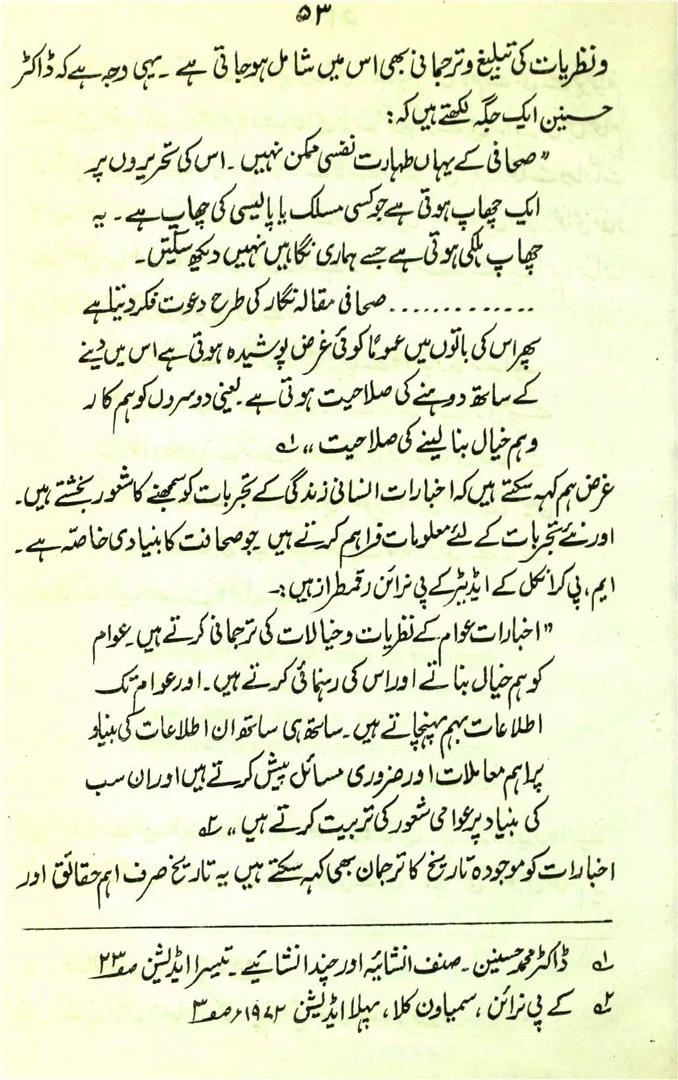 ۵۳
و نظریات کی تبلیغ و ترجمانی بھی اس میں شامل ہو جاتی ہے ۔ یہی وجہ ہے کہ ڈاکٹر
حسنین ایک جگہ لکھتے ہیں کہ :
” صحافی کے یہاں طہارت نفسی ممکن نہیں ۔ اس کی تحریروں پر
ایک چھاپ ہوتی ہے جو کسی مسلک یا پالیسی کی چھاپ ہے ۔ یہ
چھاپ ہلکی ہوتی ہے جسے ہماری نگاہیں نہیں دیکھ سکتیں ۔
............. صحافی مقالہ نگار کی طرح دعوت فکر دیتا ہے
پھر اس کی باتوں میں عموماً کوئی غرض پوشیدہ ہوتی ہے اس میں دینے
کے ساتھ دوہنے کی صلاحیت ہوتی ہے ۔ یعنی دوسروں کو ہم کار
و ہم خیال بنا لینے کی صلاحیت ،، ۱؎
غرض ہم کہہ سکتے ہیں کہ اخبارات انسانی زندگی کے تجربات کو سمجھنے کا شعور بخشتے ہیں ۔
اور نئے تجربات کے لئے معلومات فراہم کرتے ہیں جو صحافت کا بنیادی خاصّہ ہے ۔
ایم ، پی کرانکل کے ایڈیٹر کے پی نرائن رقمطراز ہیں :۔
” اخبارات عوام کے نظریات و خیالات کی ترجمانی کرتے ہیں ۔ عوام
کو ہم خیال بناتے اور اس کی رہنمائی کرتے ہیں ۔ اور عوام تک
اطلاعات بہم پہنچاتے ہیں ۔ ساتھ ہی ساتھ ان اطلاعات کی بنیاد
پر اہم معاملات اور ضروری مسائل پیش کرتے ہیں اور ان سب
کی بنیاد پر عوامی شعور کی تربیت کرتے ہیں ،، ۲؎
اخبارات کو موجودہ تاریخ کا ترجمان بھی کہہ سکتے ہیں یہ تاریخ صرف اہم حقائق اور
۱؎ ڈاکٹر محمد حسنین ۔ صنف انشائیہ اور چند انشائیے ۔ تیسرا ایڈیشن صہ ۲۳
۲؎ کے پی نرائن ، سمپاون کلا ، پہلا ایڈیشن ۱۹۷۲ء صہ ۳